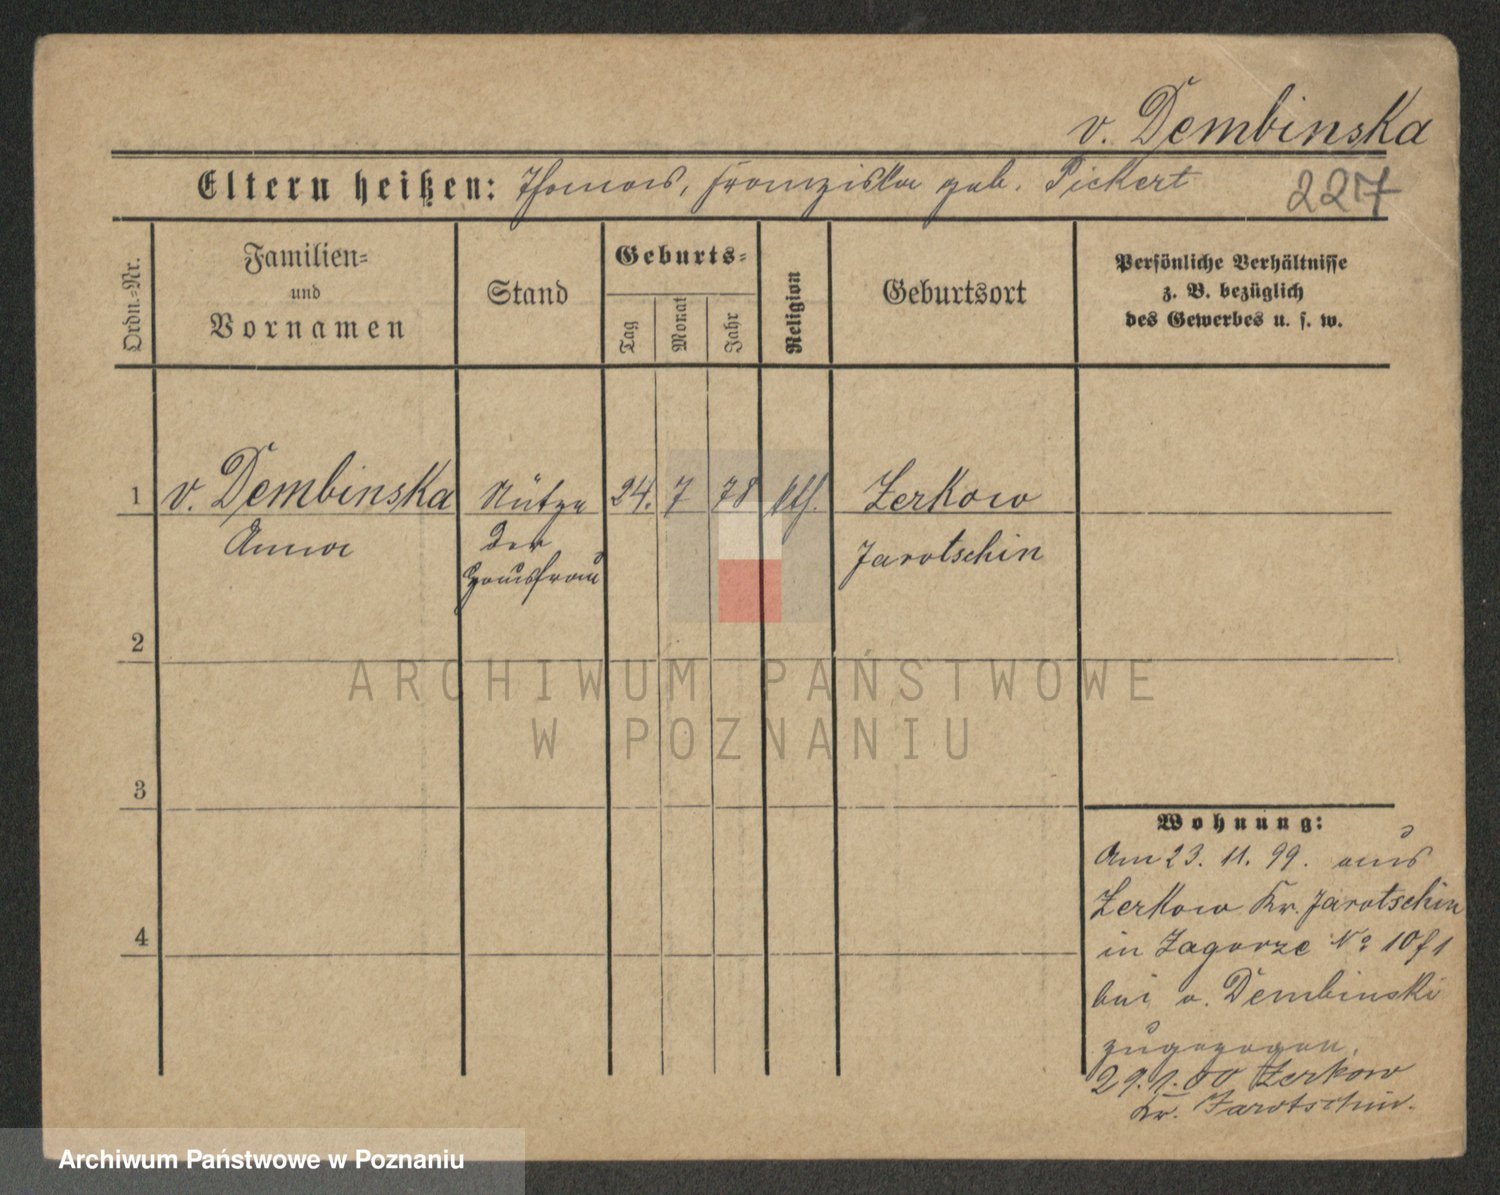 v. Dembinska
Eltern heißen: Thomas, Franziska geb. Pickert
227
Ordn.=Nr.
Familien=
und
Vornamen
Stand
Geburts=
Tag
Monat
Jahr
Religion
Geburtsort
Persönliche Verhältnisse
z. B. bezüglich
des Gewerbes u. s. w.
1 v. Dembinska Stütze 24. 7 78 kth. Zerkow
Anna der Jarotschin
Hausfrau
2
3
4
Wohnung:
Am 23. 11. 99. aus
Zerkow Kr. Jarotschin
in Zagorze No 10 f 1
bei v. Dembinski
zugezogen,
29.1.00 Zerkow
Kr. Jarotschin.
ARCHIWUM PAŃSTWOWE
W POZNANIU
Archiwum Państwowe w Poznaniu